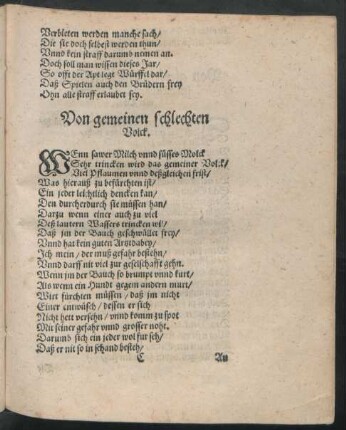 Verbieten werden manche sach/
Die sie doch selbest werden thun/
Vnnd kein straff darumb nemen an.
Doch soll man wissen dieses Jar/
So offt der Apt legt Würffel dar/
Daß Spielen auch den Brüdern frey
Ohn alle straff erlaubet sey.
Von gemeinen schlechten
Volck.
WEnn sawer Milch vnnd süsses Molck
Sehr trincken wird das gemeiner Volck/
Viel Pflaumen vnnd deßgleichen frist/
Was hierauß zu befürchten ist/
Ein jeder leichtlich dencken kan/
Den durcherdurch sie müssen han/
Darzu wenn einer auch zu viel
Deß lautern Wassers trincken wil/
Daß jm der Bauch geschwüllet frey/
Vnnd hat kein guten Artzt dabey/
Ich mein/ der muß gefahr bestehn/
Vnnd darff nit viel zur gesellschafft gehn.
Wenn jm der Bauch so brumpt vnnd kurt/
Als wenn ein Hundt gegem andern murt/
Wirt fürchten müssen/ daß jm nicht
Einer entwüsch/ dessen er sich
Nicht hett versehn/ vnnd komm zu spot
Mit seiner gefahr vnnd grosser noht.
Darumb sich ein jeder wol für seh/
Daß er nit so in schand besteh/
C An